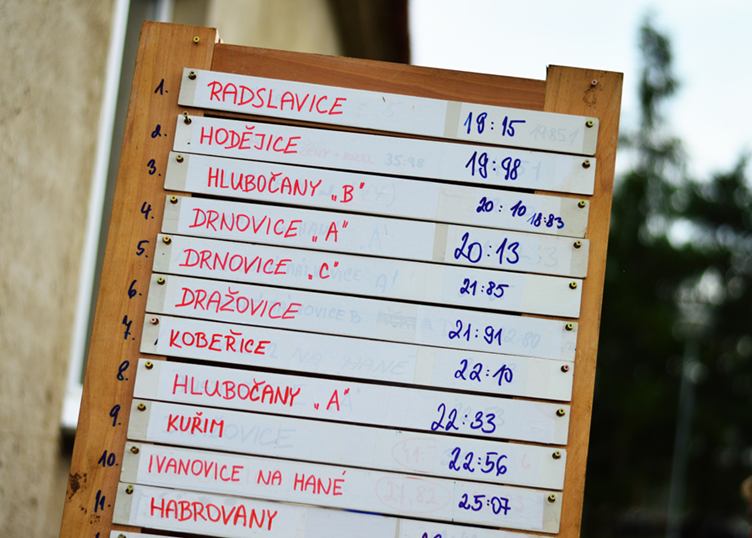 1. RADSLAVICE 18:15
2. HODĚJICE 19:98
3. HLUBOČANY „B" 20:10 18:83
4. DRNOVICE „A" 20:13
5. DRNOVICE „C" 21:85
6. DRAŽOVICE 21:91
7. KOBEŘICE 22:10
8. HLUBOČANY „A" 22:33
9. KUŘIM 22:56
10. IVANOVICE NA HANÉ 25:07
11. HABROVANY